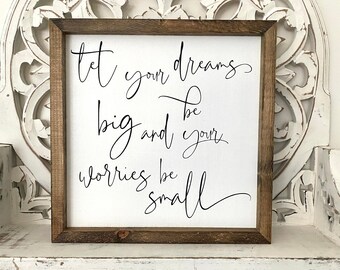 let your dreams
be
big and your
worries be
small